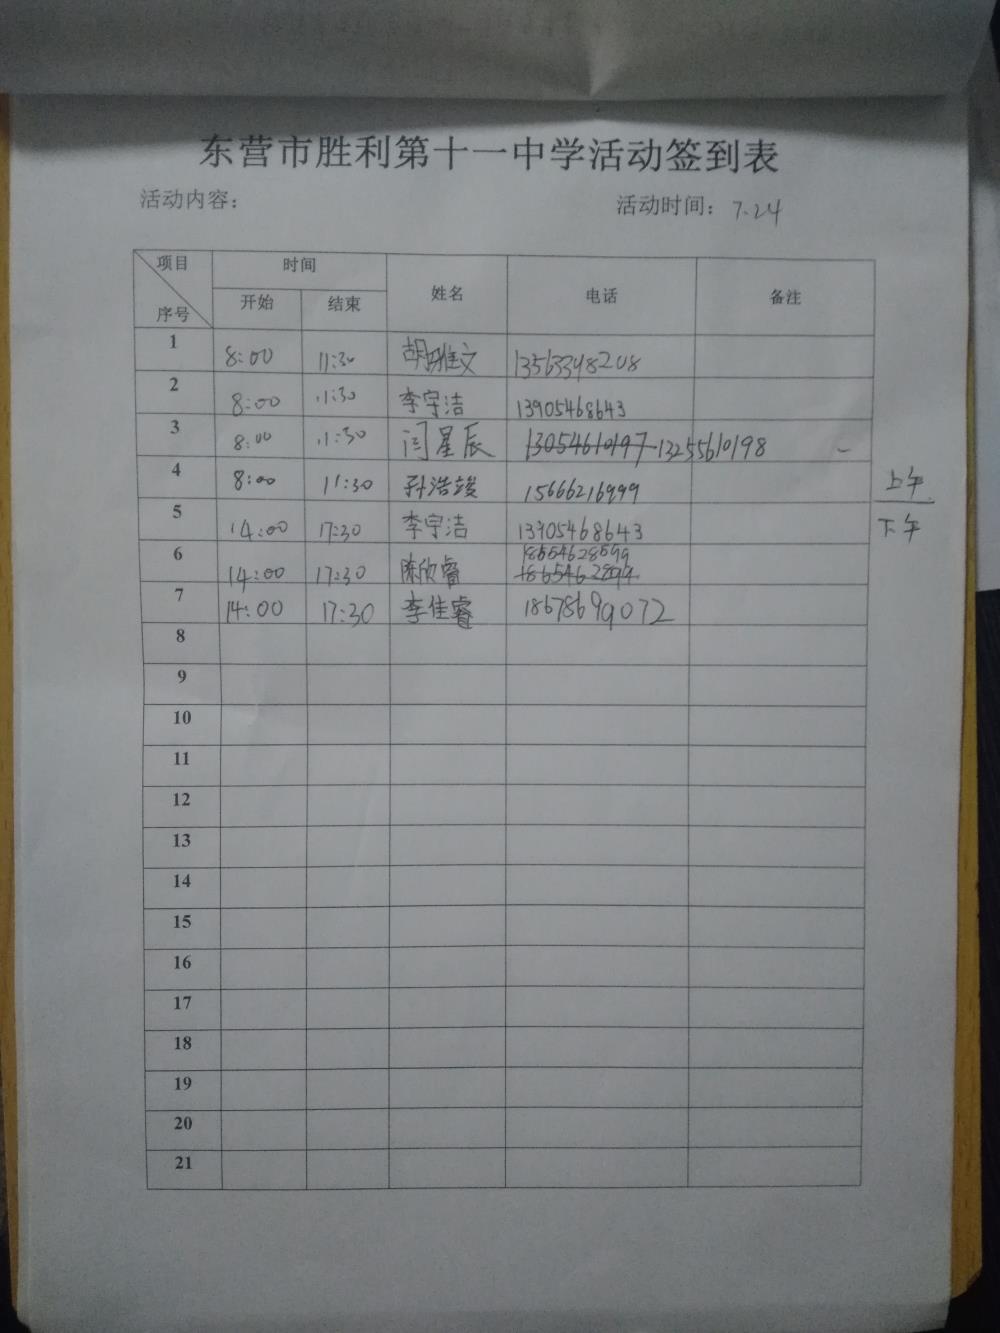 东营市胜利第十一中学活动签到表
活动内容：
活动时间：7.24
项目 时间 姓名 电话 备注
序号 开始 结束
1 8:00 11:30 胡雅文 13563348208
2 8:00 11:30 李宇洁 13905468643
3 8:00 11:30 闫星辰 13054610197 13255610198
4 8:00 11:30 孙浩竣 15666216999
上午
5 14:00 17:30 李宇洁 13905468643
下午
6 14:00 17:30 陈欣睿 18654628599
7 14:00 17:30 李佳睿 18678699072
8
9
10
11
12
13
14
15
16
17
18
19
20
21